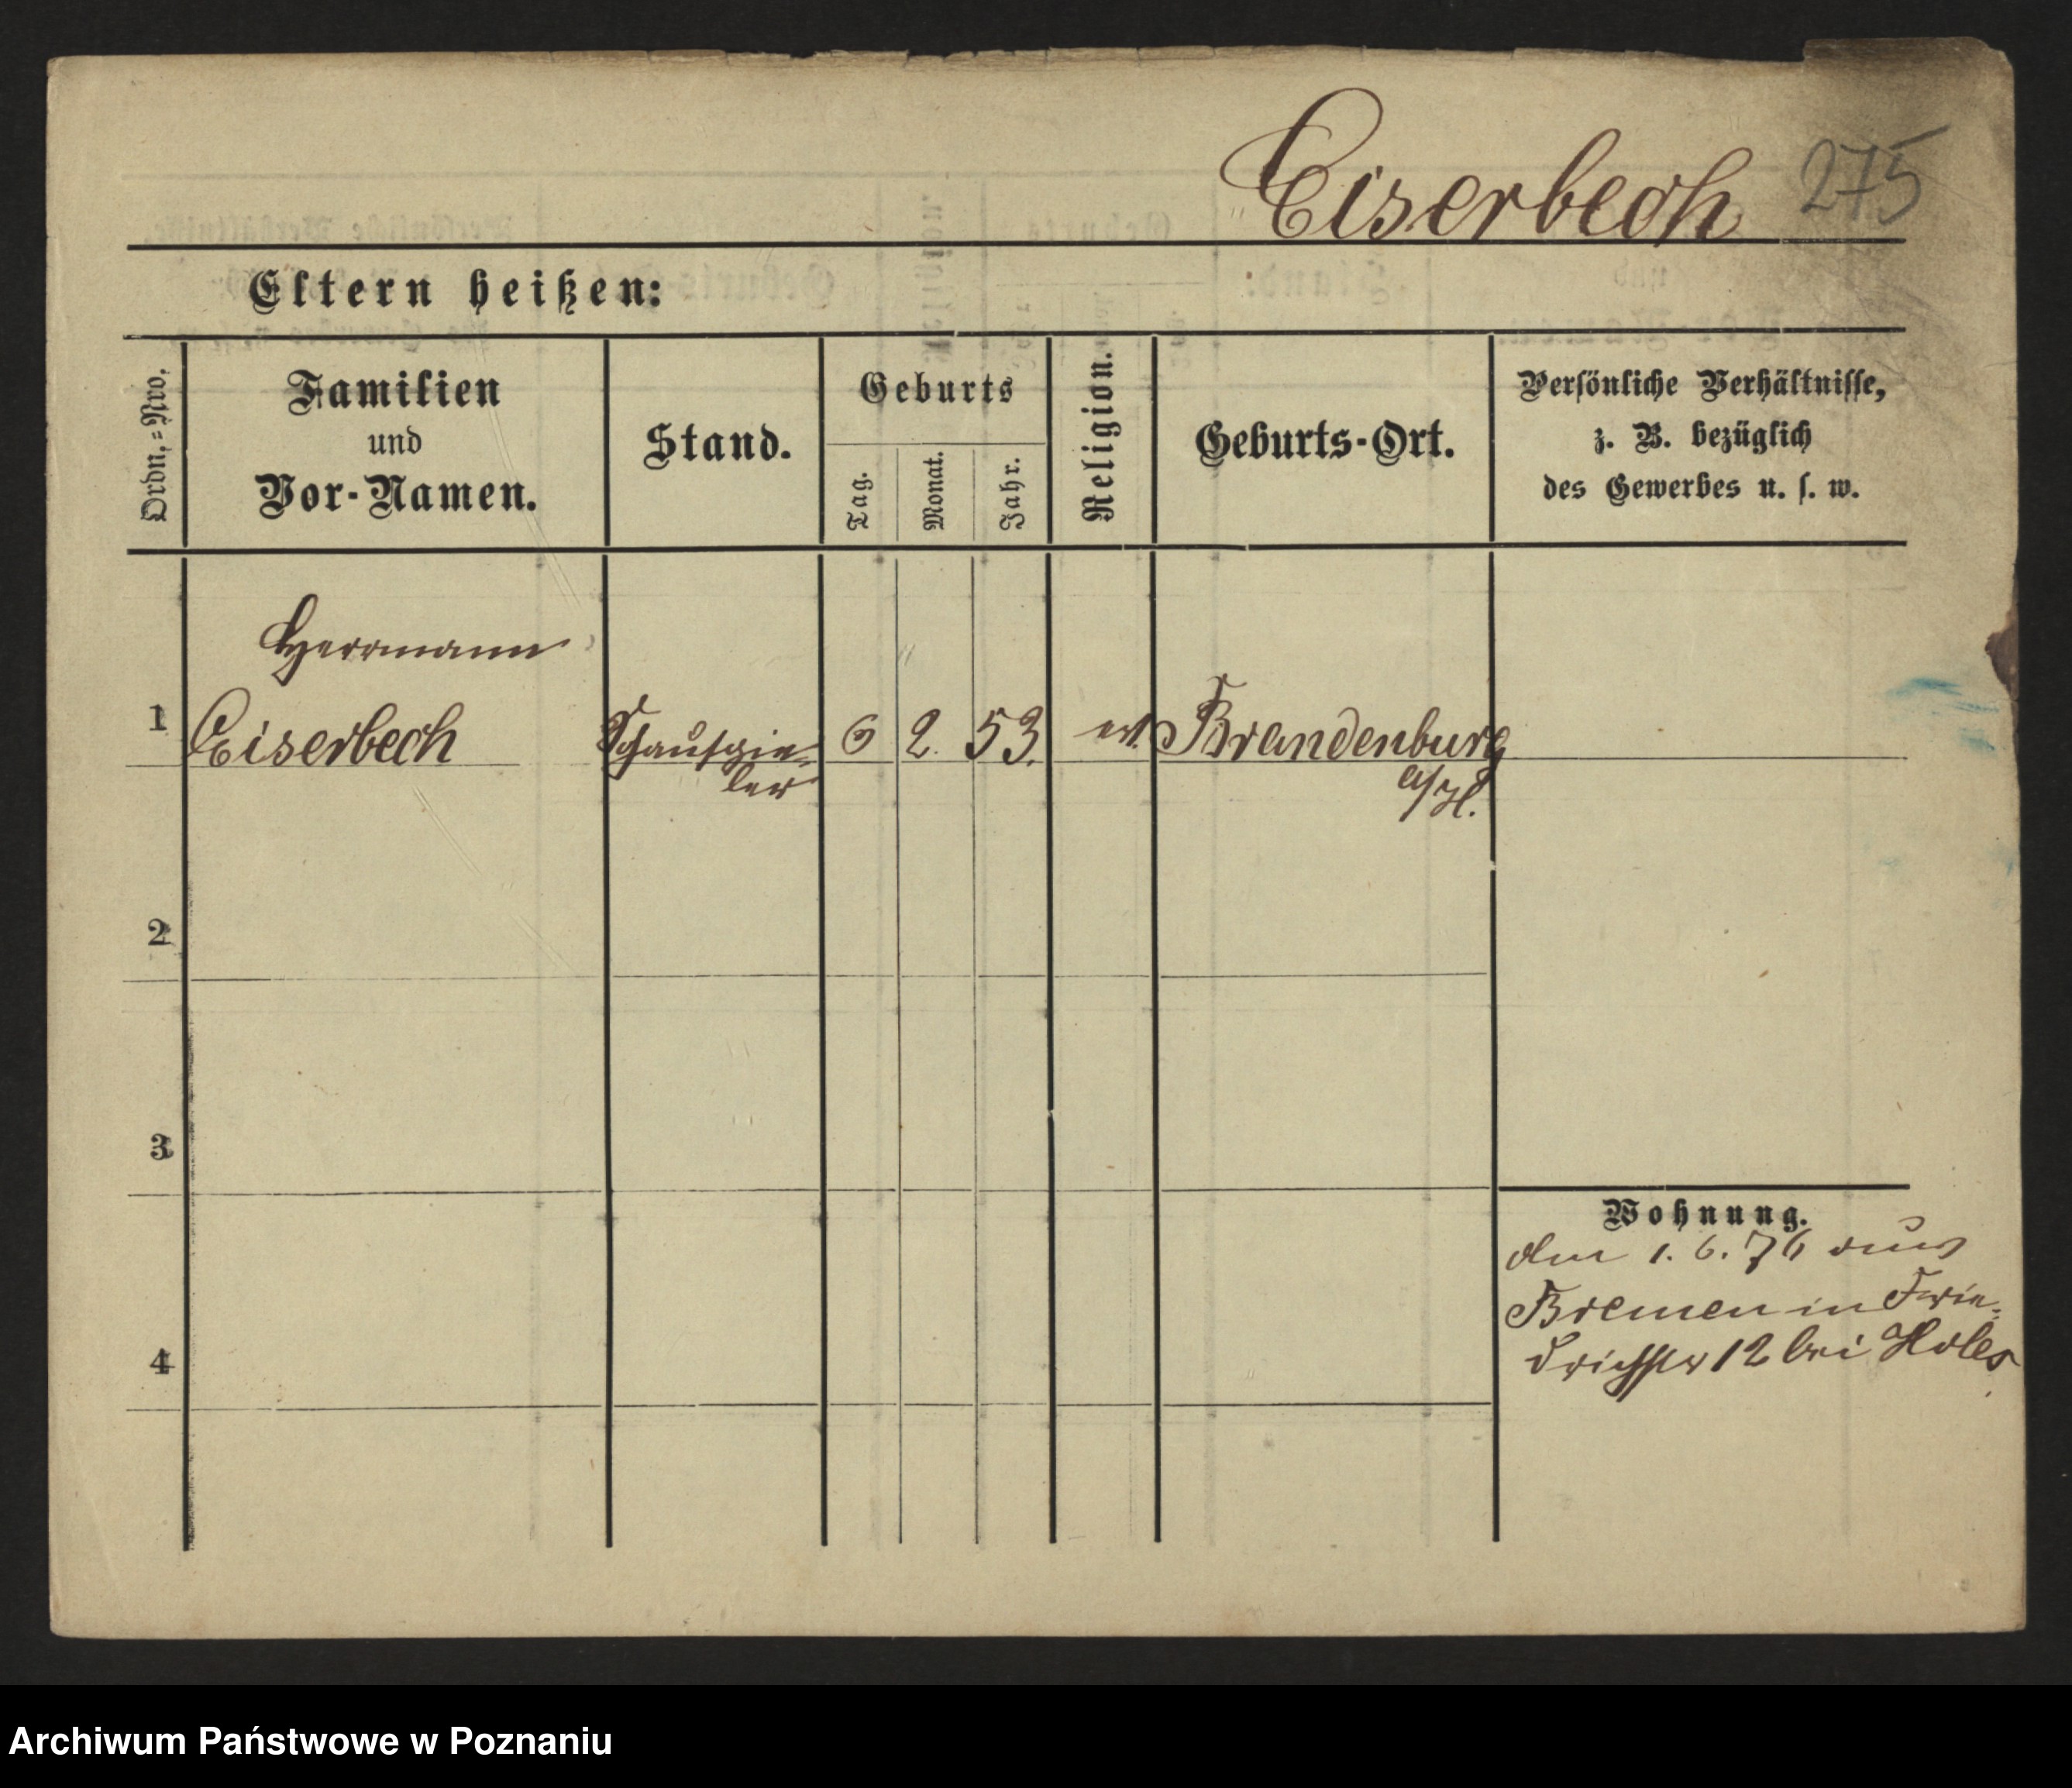 Eiserbech 275
Eltern heißen:
Ordn.=Nro.
Familien
und
Vor-Namen.
Stand.
Geburts
Tag.
Monat.
Jahr.
Religion.
Geburts-Ort.
Persönliche Verhältnisse,
z. B. bezüglich
des Gewerbes u. s. w.
Herrmann
1 Eiserbech Schauspie= 6 2. 53. Brandenburg
ler a/H.
2
3
4
Wohnung.
den 1. 6. 76 aus
Bremen in Frie=
drichstr 12 bei
Archiwum Państwowe w Poznaniu